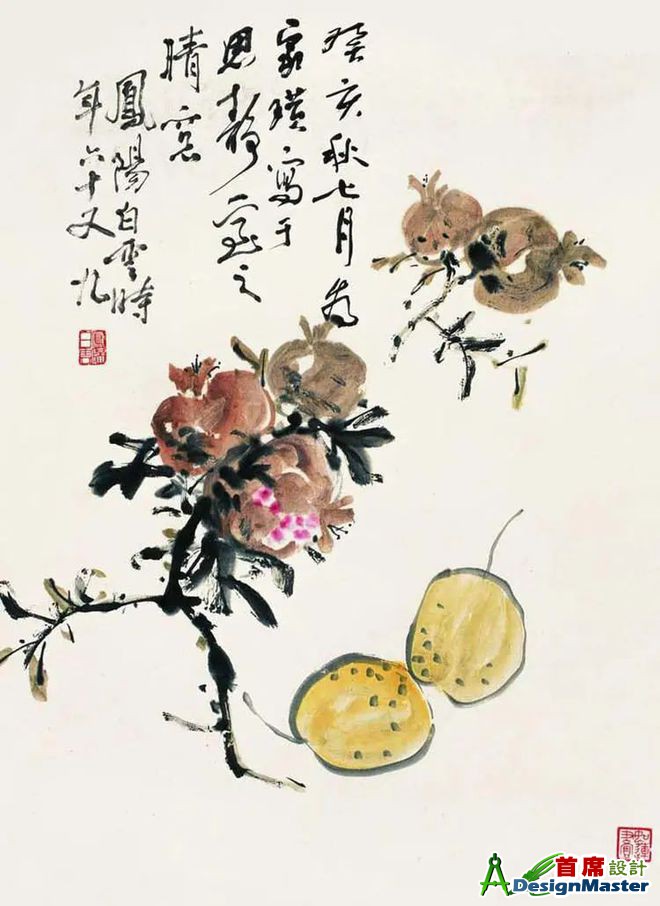 癸亥秋七月為
家寫于
思靜齋之
晴窓
鳳陽白雲時
年六十又九
首席設計
ADesignMaster